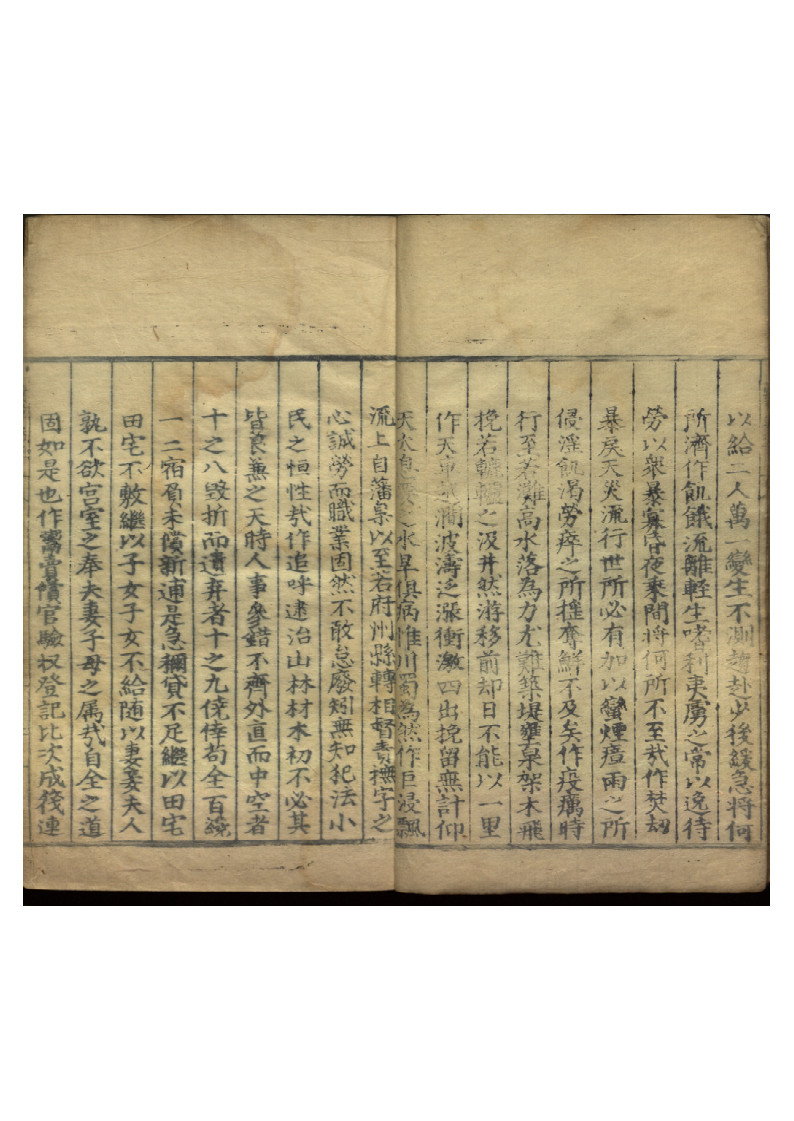 以給二人萬一變生不測趨赴少後緩急將何
所濟作飢餓流離軽生嗜利夷虜之常以逸待
勞以衆暴寡昏夜乗間將何所不至㢤作焚刼
暴戾天災流行世所必有加以蠻煙瘴雨之所
侵淫飢渴勞瘁之所摧奪鮮不及矣作疫癘時
行至若灘高水落為力尤難築堤壅泉架木飛
挽若轆轤之汲井然游移前却日不能以一里
作天車越澗波濤泛漲衝激四出挽留無計仰
天太息水旱俱病惟川蜀為然作巨浸飄
流上自藩臬以至若府州縣轉相督責撫字之
心誠勞而職業固然不敢怠廢矧無知犯法小
民之恒性㢤作追呼逮治山林材木初不必其
皆良兼之天時人事參錯不齊外直而中空者
十之八毀折而遺弃者十之九僥倖苟全百纔
一二宿負未償新逋是急稱貸不足繼以田宅
田宅不敷繼以子女子女不給随以妻妾夫人
孰不欲宫室之奉夫妻子母之属㢤自全之道
固如是也作鬻賣償官驗収登記比次成筏連